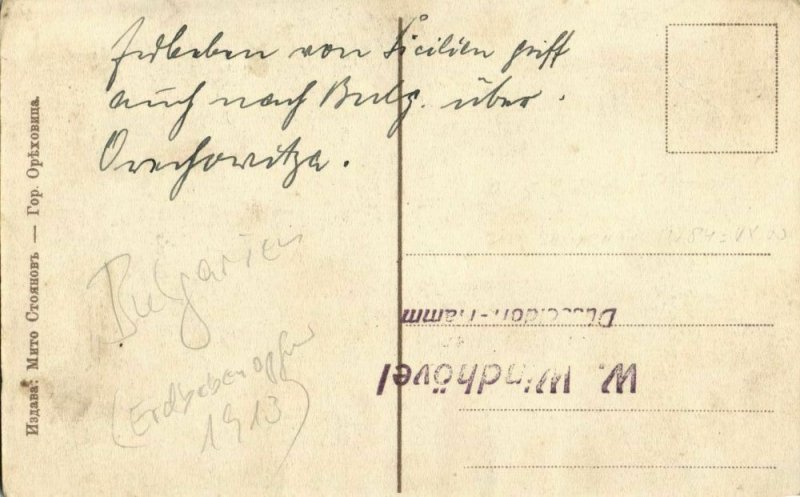 Erdbeben von Sicilien griff
auch nach Bulg. über.
Orechowitza.
Bulgarien
(Erdbebenopfer
1913)
Издава: Мито Стояновъ — Гор. Орѣховица.
W. Windhövel
Düsseldorf-Hamm